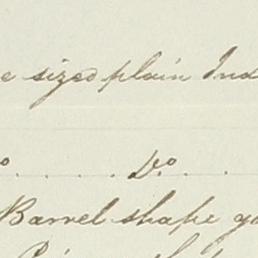 e sized plain Ind
o . . . . . . Do. . . .
Barrel shape ga